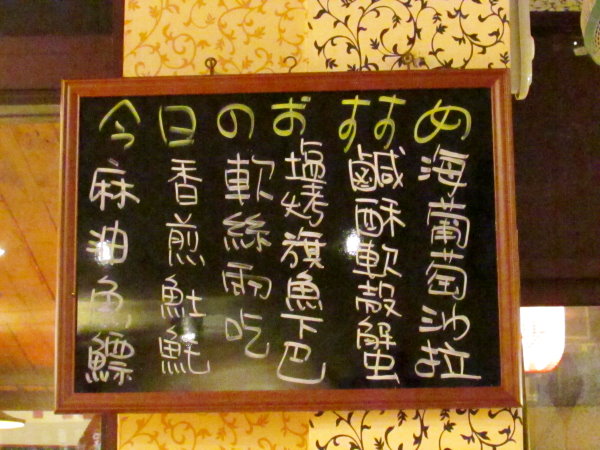 今日のおすすめ
海葡萄沙拉
鹹酥軟殼蟹
塩烤旗魚下巴
軟絲兩吃
香煎𩵚魠
麻油魚鰾